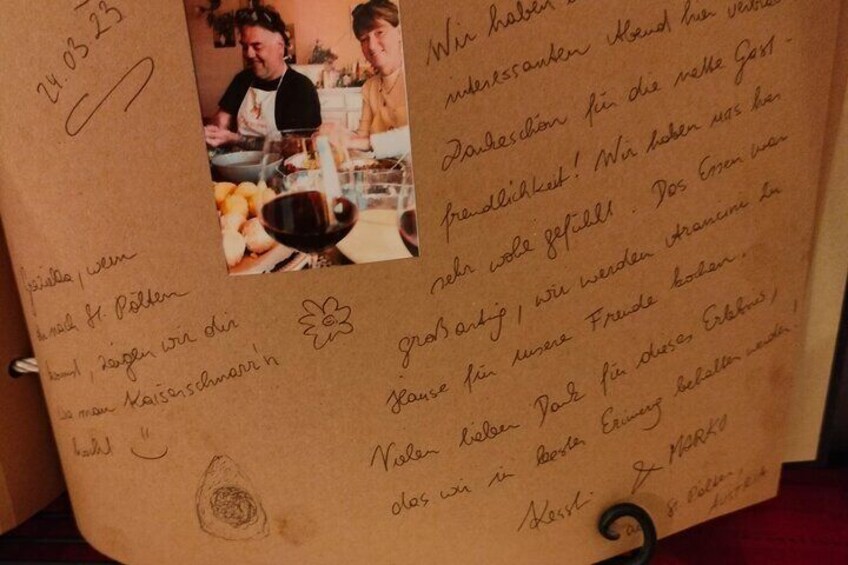 24.03.23
Wir haben
interessanten Abend hier verbra
Dankeschön für die nette Gast-
freundlichkeit! Wir haben uns hier
sehr wohl gefühlt. Das Essen war
großartig, wir werden Arancini zu
Hause für unsere Freude kochen.
Vielen lieben Dank für dieses Erlebnis,
das wir in bester Erinnerung behalten werden!
& MARKO
aus St. Pölten,
AUSTRIA
wenn
du nach St. Pölten
kommst, zeigen wir dir
wie man Kaiserschmarr'n
macht